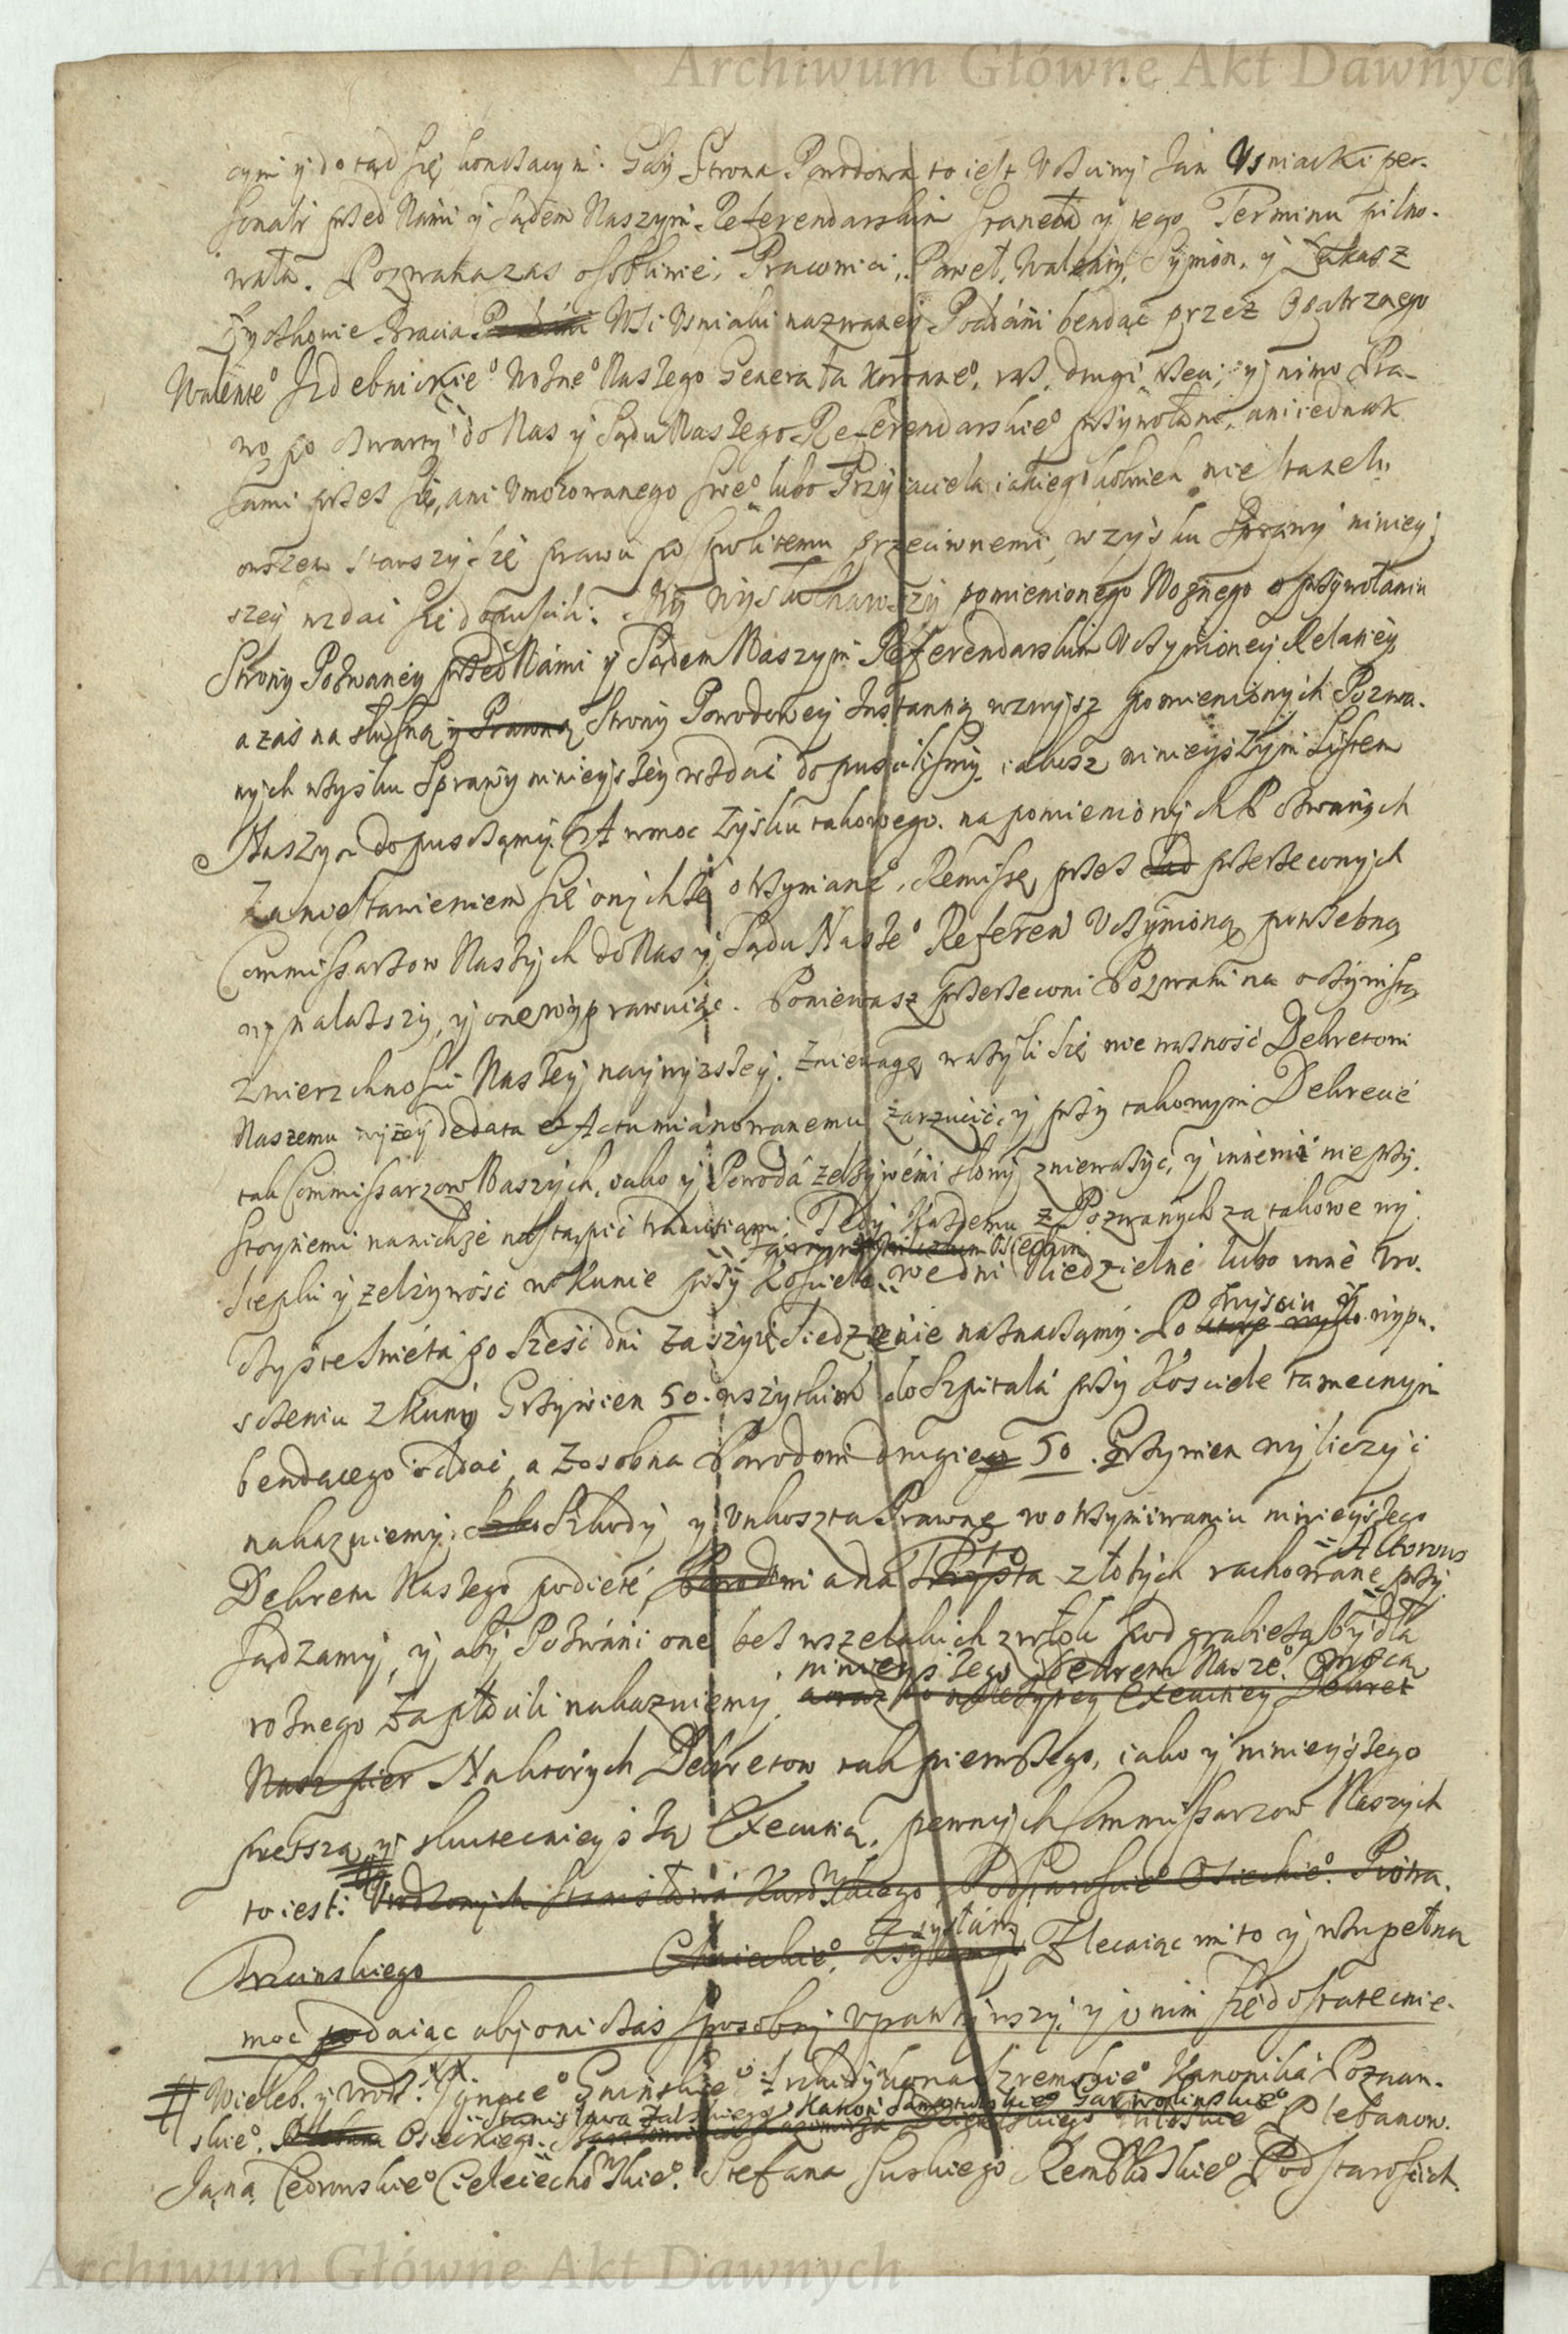 Archiwum Główne Akt Dawnych
cym y do tąd się konczącym. Gdy Strona Powodowa to iest Vczciwy Jan Vsniacki per-
sonalr przed Nami y Sądem Naszym Referendarskim staneła y tego Terminu pilno-
wała. Pozwana zas osobliwie, Pracowici, Paweł, Walenty, Symon, y Łukasz
Bracia Wsi Vsniaki nazwaney Poddani bendąc przez Opatrznego
Walente° Jzdebnickie° Wozne° Naszego Generała Koronne°. raz, drugi, trzeci, y nimo Pra-
wo po czwarty do Nas y Sądu Naszego Referendarskie° przywołane, ani iednak
sami przez się, ani Vmocowanego swe° lubo Przyiaciela iakiegokolwiek nie stazeli,
owszem stawszy się prawu po spolitemu przeciwnemi, w zysku Sprawy niniey-
szey wzdac się dopuscili. My wysłuchawszy pomienionego Woznego o przywołaniu
Strony Pozwaney przed Nami y Sądem Naszym Referendarskim Vczynioney Relaciey,
a zas na słuszną y Prawną Strony Powodowey Instantią wzwysz pomienionych Pozwa-
nych w zysku Sprawy ninieyszey wzdac dopuscilismy, iakosz ninieyszym Listem
Naszym dopusczamy. A w moc zysku takowego na pomienionych Pozwanych
za niestawieniem się onychże otrzymane°, Remissę przez Sąd przerzeczonych
Commissarzow Naszych do Nas y Sądu Nasze° Referen Vczynioną potrzebną
wynalazszy, y onę wyprawuiąc. Poniewasz przerzeczeni Pozwani na oczywistą
zwierzchnosci Naszey naywyższey zniewagę ważyli się nie ważność Dekretowi
Naszemu wyżey de data et Actu mianowanemu zarzucić, y przy takowym Dekrecie
tak Commissarzow Naszych, iako y Powoda zelżywemi słowy znieważyć, y innemi nieprzy-
stoynemi na nichże nastąpić tradukciami; Tedy Kazdemu z Pozwanych za takowe wy-
stępki y zelżywość w Kunie przy Kosciele we dni Niedzielne lubo inne Vro-
czyste Swięta po sześć dni za szyię siedzenie naznaczamy. Po wyiściu y wypu-
sczeniu z Kuny Grzywien 50. wszytkim do Szpitala przy Kosciele tamecznym
bendącego oddać, a zosobna Powodowi drugie 50. Grzywien wyliczyć
nakazuiemy. Szkody y Vkoszta Prawne w otrzymywaniu ninieyszego
Dekretu Naszego podięte Powodowi a na Sto złotych rachowane Aktorowi przy-
sądzamy, y aby Pozwani one bez wszelakich zwłok pod grabieżą bydła
rożnego zapłacili nakazuiemy. ninieyszego Dekretu Nasze° mocą
Na ktorych Dekretow tak pierwszego, iako y ninieyszego
prętszą y skutecznieyszą Execucią, pewnych Commissarzow Naszych
to iest: Vrodzonych Stanisława Podstaroscie° Osieckie° Piotra
Trzcinskiego zsyłamy, Zlecaiąc im to y wzupełną
moc daiąc aby oni czas sposobny upatrzywszy, y o nim się dostatecznie
# Wieleb. y Vrodz: Ignace° Gninskie° Archidyakona Sremskie° Kanonika Poznan-
skie°. Osieckiego. Stanisława Zalskiego Garwolinskie° Plebanow.
Jana Cedrowskie° Stefana Suskiego Podstarosich.
Archiwum Główne Akt Dawnych